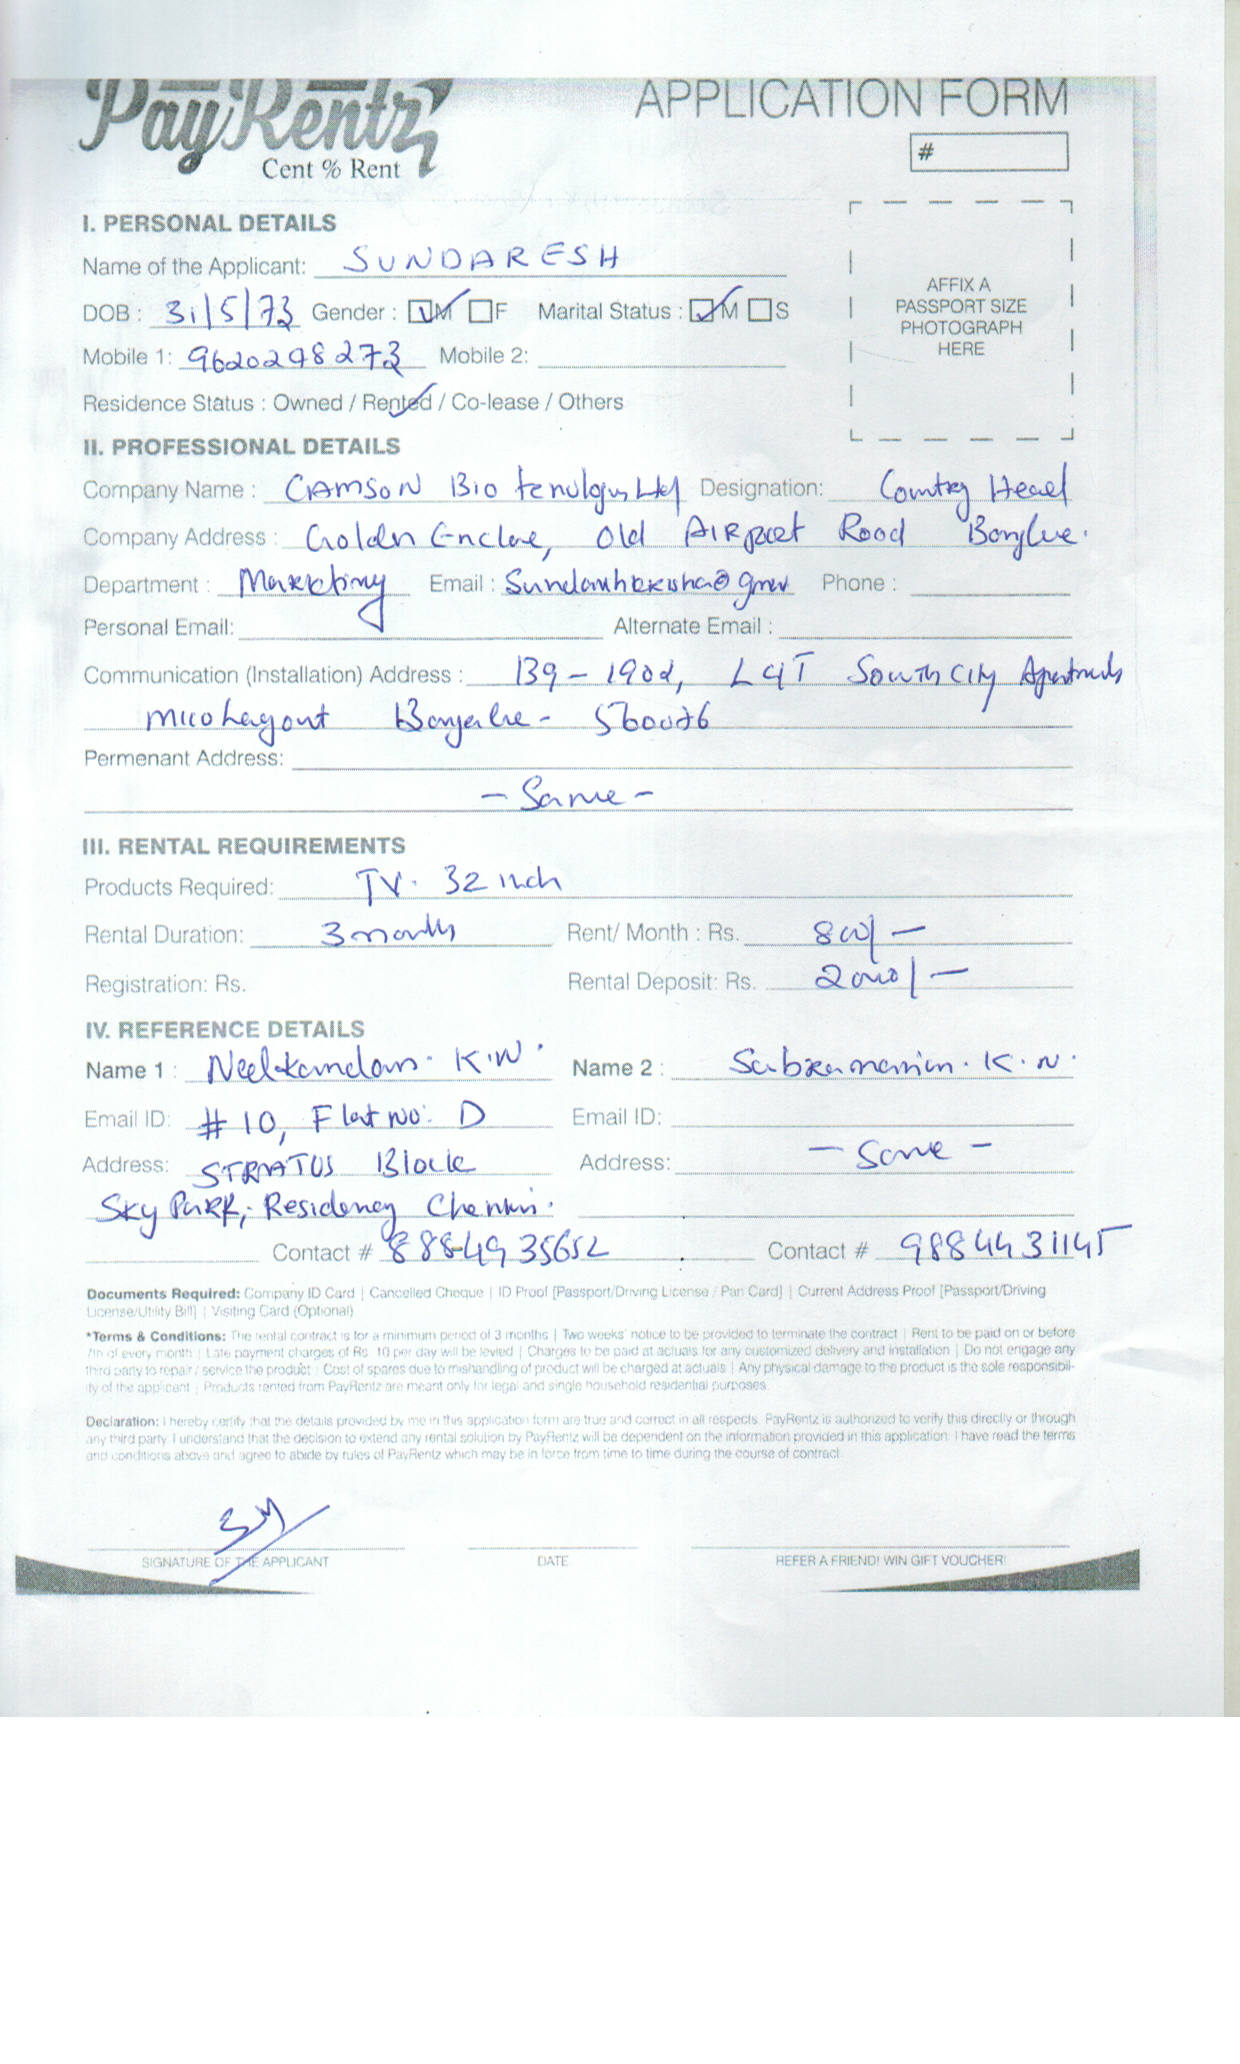 PayRentz
Cent % Rent
APPLICATION FORM
#
I. PERSONAL DETAILS
Name of the Applicant: SUNDARESH
DOB : 31/5/73 Gender : M F Marital Status : M S
Mobile 1: 9620298273 Mobile 2:
Residence Status : Owned / Rented / Co-lease / Others
AFFIX A
PASSPORT SIZE
PHOTOGRAPH
HERE
II. PROFESSIONAL DETAILS
Company Name : CAMSON Bio Ltd Designation: Country Head
Company Address : Golden Enclave, Old AIRport Road
Department : Marketing Email : Phone :
Personal Email: Alternate Email :
Communication (Installation) Address : 139 - 190d, L&T South City Apartments
Mico Layout 560076
Permenant Address:
- Same -
III. RENTAL REQUIREMENTS
Products Required: TV. 32 inch
Rental Duration: 3 months Rent/ Month : Rs. 800/-
Registration: Rs. Rental Deposit: Rs. 2000/-
IV. REFERENCE DETAILS
Name 1 : K.N. Name 2 : Subramanian. K.N.
Email ID: #10, Flat no: D Email ID:
Address: STRATUS Block Address: - Same -
Sky Park, Residency Chennai.
Contact # 8884935652 Contact # 9884431145
Documents Required: Company ID Card | Cancelled Cheque | ID Proof [Passport/Driving License / Pan Card] | Current Address Proof [Passport/Driving
License/Utility Bill] | Visiting Card (Optional)
*Terms & Conditions: The rental contract is for a minimum period of 3 months | Two weeks' notice to be provided to terminate the contract | Rent to be paid on or before
7th of every month | Late payment charges of Rs. 10 per day will be levied | Charges to be paid at actuals for any customized delivery and installation | Do not engage any
third party to repair / service the product | Cost of spares due to mishandling of product will be charged at actuals | Any physical damage to the product is the sole responsibil-
ity of the applicant | Products rented from PayRentz are meant only for legal and single household residential purposes.
Declaration: I hereby certify that the details provided by me in this application form are true and correct in all respects. PayRentz is authorized to verify this directly or through
any third party. I understand that the decision to extend any rental solution by PayRentz will be dependent on the information provided in this application. I have read the terms
and conditions above and agree to abide by rules of PayRentz which may be in force from time to time during the course of contract.
SIGNATURE OF THE APPLICANT DATE REFER A FRIEND! WIN GIFT VOUCHER!